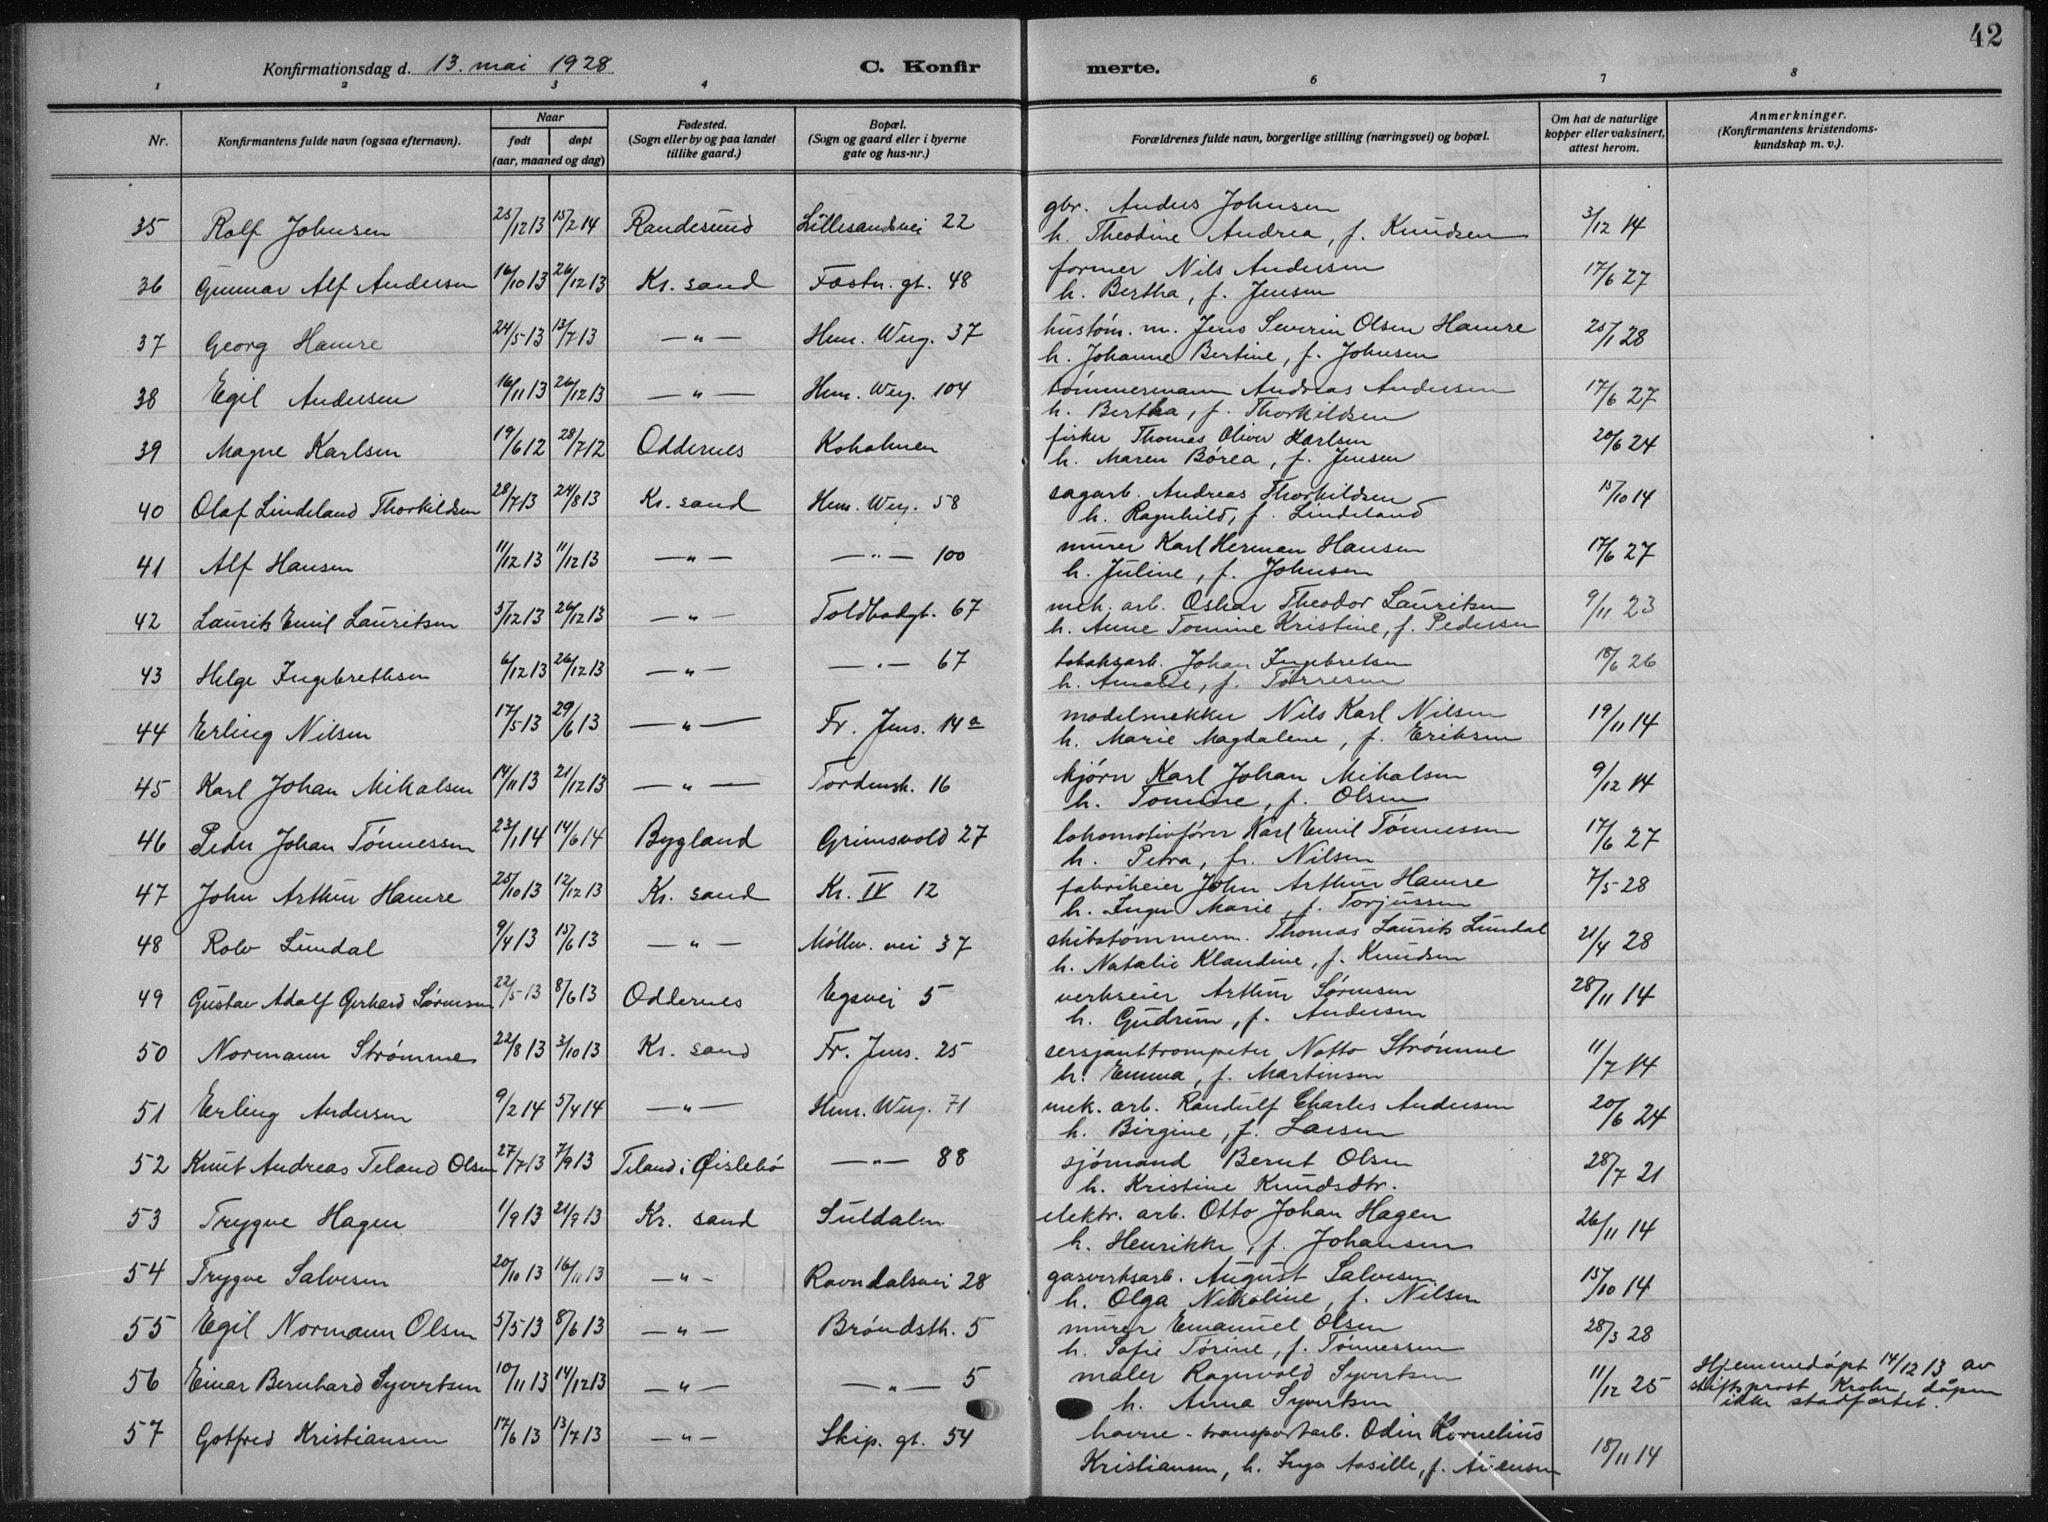 42
Konfirmationsdag d. 13. mai 1928
C. Konfirmerte.
1 2 3 4 5 6 7 8
Nr. | Konfirmantens fulde navn (ogsaa efternavn). | Naar født døpt (aar, maaned og dag) | Fødested. (Sogn eller by og paa landet tillike gaard.) | Bopæl. (Sogn og gaard eller i byerne gate og hus-nr.) | Forældrenes fulde navn, borgerlige stilling (næringsvei) og bopæl. | Om hat de naturlige kopper eller vaksinert, attest herom. | Anmerkninger. (Konfirmantens kristendomskundskap m. v.).
35 Rolf Johnsen 25/12 13 15/2 14 Randesund Lillesandsvei 22 gbr. Anders Johnsen 3/12 14
h. Theodine Andrea, f. Knudsen
36 Gunnar Alf Andersen 16/10 13 26/12 13 Kr. sand Fæstn. gt. 48 former Nils Andersen 17/6 27
h. Bertha, f. Jensen
37 Georg Hamre 24/5 13 13/7 13 —"— Hen. Werg. 37 hustøm. m. Jens Severin Olsen Hamre 25/1 28
h. Johanne Bertine, f. Johnsen
38 Egil Andersen 16/11 13 26/12 13 —"— Hen. Werg. 104 tømmermann Andreas Andersen 17/6 27
h. Bertha, f. Thorkildsen
39 Magne Karlsen 19/6 12 28/7 12 Oddernes Koholmen fisker Thomas Oliver Karlsen 20/6 24
h. Maren Børea, f. Jensen
40 Olaf Lindeland Thorkildsen 28/7 13 24/8 13 Kr. sand Hen. Werg. 58 sagarb. Andreas Thorkildsen 15/10 14
h. Ragnhild, f. Lindeland
41 Alf Hansen 11/12 13 11/12 13 —"— —"— 100 murer Karl Herman Hansen 17/6 27
h. Juline, f. Johnsen
42 Laurits Emil Lauritsen 5/12 13 26/12 13 —"— Toldbodgt. 67 mek. arb. Oskar Theodor Lauritsen 9/11 23
h. Anne Tomine Kristine, f. Pedersen
43 Helge Ingebrethsen 6/12 13 26/12 13 —"— —"— 67 tobaksarb. Johan Ingebretsen 18/6 26
h. Amalie, f. Tørresen
44 Erling Nilsen 17/5 13 29/6 13 —"— Fr. Jens. 14a modelsnekker Nils Karl Nilsen 19/11 14
h. Marie Magdalene, f. Eriksen
45 Karl Johan Mikalsen 14/11 13 21/12 13 —"— Tordensk. 16 kjørn Karl Johan Mikalsen 9/12 14
h. Tomine, f. Olsen
46 Peder Johan Tønnessen 23/1 14 14/6 14 Bygland Grimsvold 27 lokomotivfører Karl Emil Tønnessen 17/6 27
h. Petra, f. Nilsen
47 John Arthur Hamre 25/10 13 12/12 13 Kr. sand Kr. IV 12 fabrikeier John Arthur Hamre 7/5 28
h. Inger Marie f. Torjussen
48 Rolv Lundal 9/4 13 15/6 13 —"— Møllev. vei 37 skibstømmerm. Thomas Laurits Lundal 21/4 28
h. Natalie Klaudine, f. Knudsen
49 Gustav Adolf Gerhard Sørensen 22/5 13 8/6 13 Oddernes Egsvei 5 verkseier Arthur Sørensen 28/11 14
h. Gudrun, f. Andersen
50 Normann Strømme 22/8 13 3/10 13 Kr. sand Fr. Jens. 25 sersjanttrompeter Notto Strømme 11/7 14
h. Emma, f. Martinsen
51 Erling Andersen 9/2 14 5/4 14 —"— Hen. Werg. 71 mek. arb. Randulf Charles Andersen 20/6 24
h. Birgine, f. Larsen
52 Knut Andreas Teland Olsen 27/7 13 7/9 13 Teland i Øislebø —"— 88 sjømand Bernt Olsen 28/7 21
h. Kristine Knudsdtr.
53 Trygve Hagen 1/9 13 21/9 13 Kr. sand Suldalen elektr. arb. Otto Johan Hagen 26/11 14
h. Henrikke, f. Johansen
54 Trygve Salvesen 20/10 13 16/11 13 —"— Ravndalsvei 28 gasverksarb. August Salvesen 15/10 14
h. Olga Nikoline, f. Nilsen
55 Egil Normann Olsen 5/5 13 8/6 13 —"— Brøndsth. 5 murer Emanuel Olsen 28/3 28
h. Sofie Tørine, f. Tønnessen
56 Einar Bernhard Syvertsen 10/11 13 14/12 13 —"— —"— 5 maler Ragnvald Syvertsen 11/12 25 Hjemmedøpt 14/12 13 av
h. Anna Syvertsen stiftsprost Krohn, dåpen
ikke stadfæstet.
57 Gotfred Kristiansen 17/6 13 13/7 13 —"— Skip. gt. 54 havne-transportarb. Odin Kornelius 18/11 14
Kristiansen, h. Inga Aasille, f.